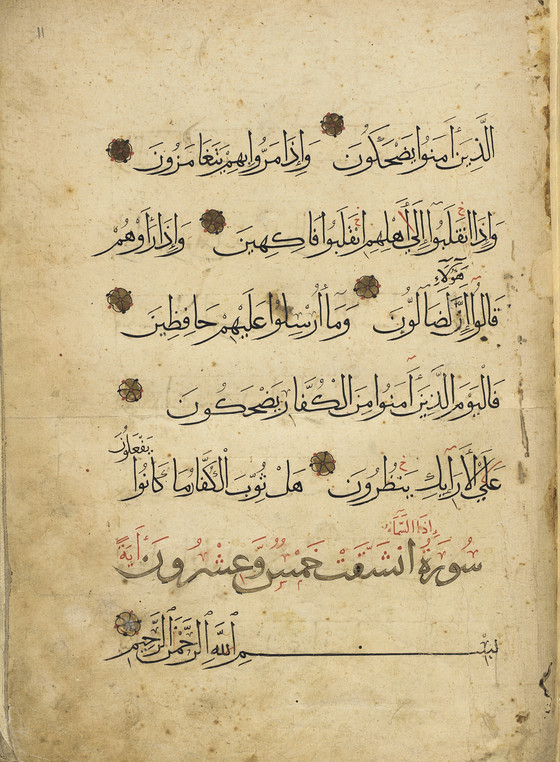 ١١
الَّذِينَ آمَنُوا يَضْحَكُونَ وَإِذَا مَرُّوا بِهِمْ يَتَغَامَزُونَ
وَإِذَا انْقَلَبُوا إِلَى أَهْلِهِمُ انْقَلَبُوا فَاكِهِينَ وَإِذَا رَأَوْهُمْ
هَؤُلَاءِ
قَالُوا إِنَّ لَضَالُّونَ وَمَا أُرْسِلُوا عَلَيْهِمْ حَافِظِينَ
فَالْيَوْمَ الَّذِينَ آمَنُوا مِنَ الْكُفَّارِ يَضْحَكُونَ
عَلَى الْأَرَائِكِ يَنْظُرُونَ هَلْ ثُوِّبَ الْكُفَّارُ مَا كَانُوا يَفْعَلُونَ
إِذَا السَّمَاءُ
سُورَةُ انْشَقَّتْ خَمْسٌ وَعِشْرُونَ آيَةً
بِسْمِ اللَّهِ الرَّحْمَنِ الرَّحِيمِ